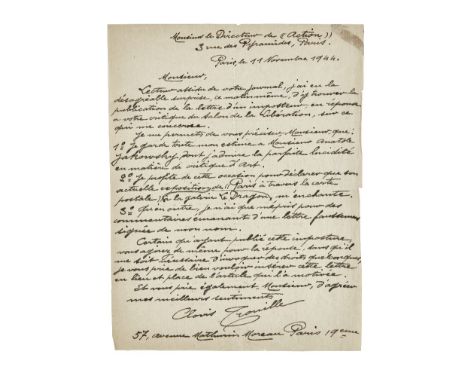 Monsieur le Directeur de "Action"
3 rue des Pyramides, Paris.
Paris, le 11 Novembre 1944.
Monsieur,
Lecteur assidu de votre journal, j'ai eu la
désagréable surprise, ce matin même, d'y trouver la
publication de la lettre d'un imposteur en réponse
à votre critique du Salon de la Libération, sur ce
qui me concerne.
Je me permets de vous préciser, Monsieur que :
1º Je garde toute mon estime à Monsieur Anatole
Jakovsky, dont j'admire la parfaite lucidité
en matière de critique d'Art.
2º Je profite de cette occasion pour déclarer que son
actuelle exposition de "Paris à travers la carte
postale" à la galerie le Dragon, m'enchante.
3º qu'en outre, je n'ai que mépris pour des
commentaires émanant d'une lettre faussement
signée de mon nom.
Certain qu'ayant publié cette imposture
vous agirez de même pour la réponse, sans qu'il
me soit nécessaire d'invoquer des droits quelconques,
je vous prie de bien vouloir insérer cette lettre
en lieu et place de l'article qui l'a motivée.
Et vous prie également, Monsieur, d'agréer
mes meilleurs sentiments
Clovis Trouille
57, avenue Mathurin Moreau Paris 19eme